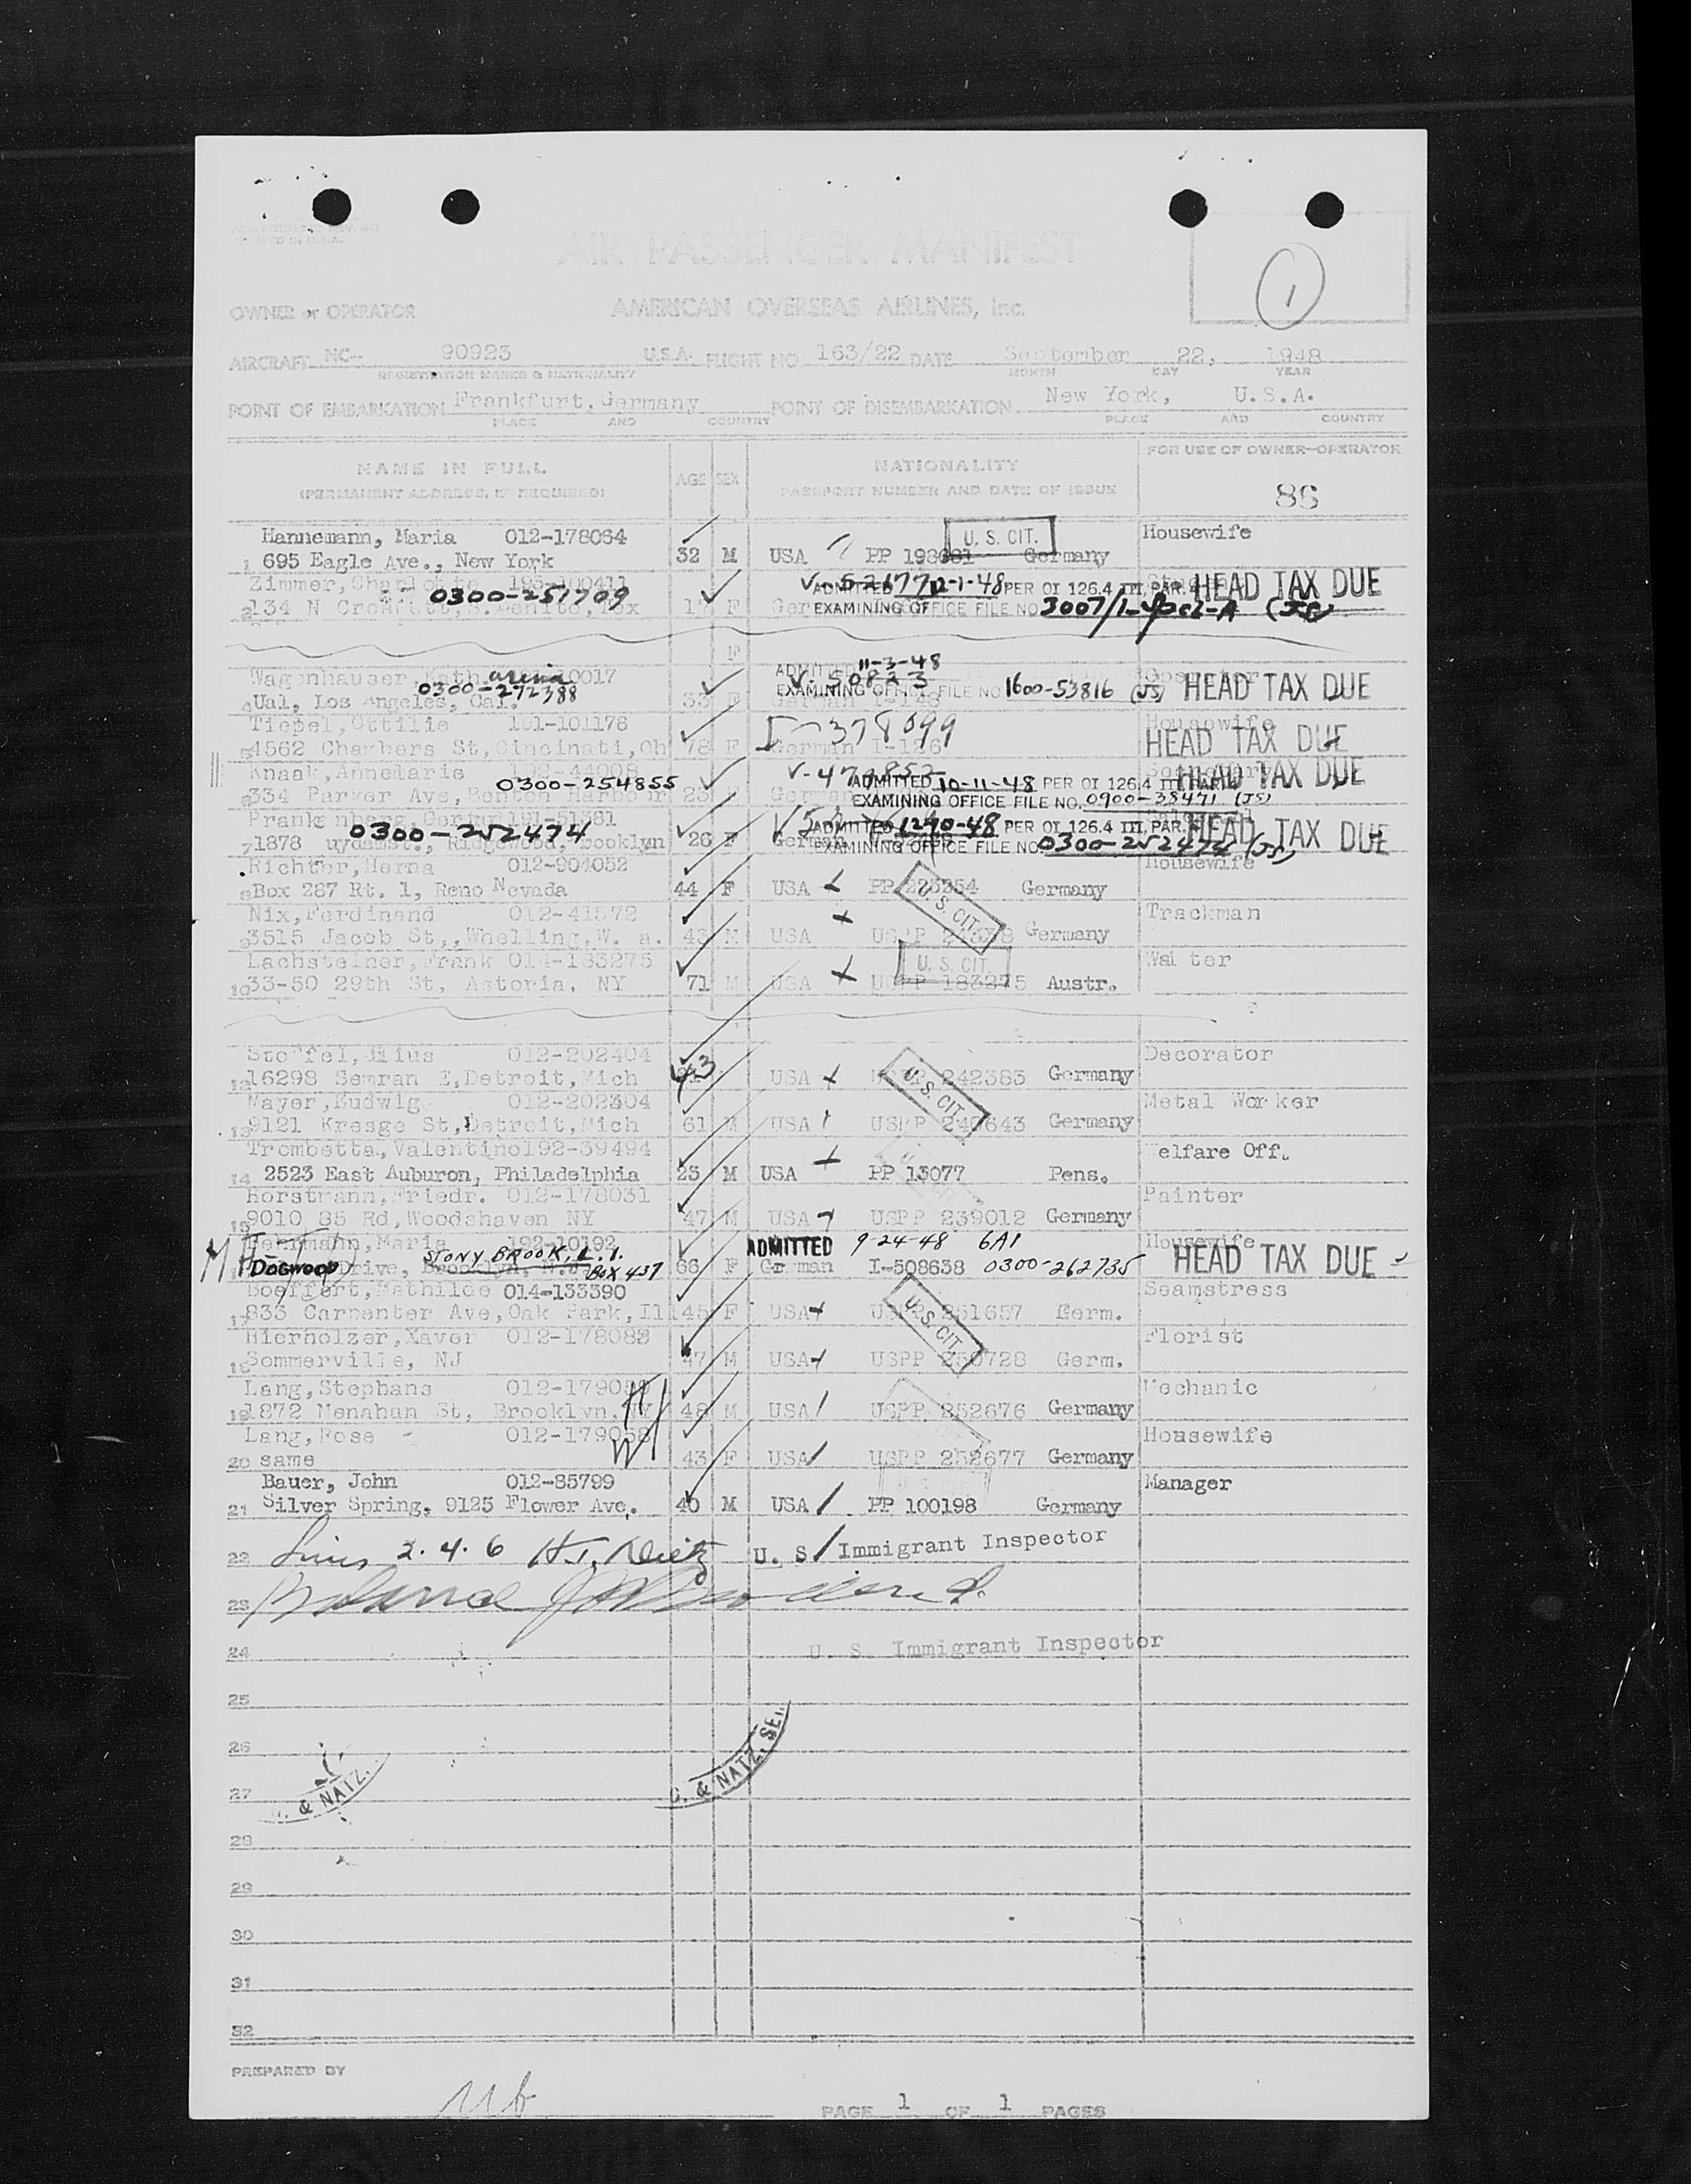 PRINTED IN U.S.A.
AIR PASSENGER MANIFEST
1
OWNER or OPERATOR AMERICAN OVERSEAS AIRLINES, Inc.
AIRCRAFT NC-- 90923 U.S.A. FLIGHT NO 163/22 DATE September 22, 1948
REGISTRATION MARKS & NATIONALITY MONTH DAY YEAR
POINT OF EMBARKATION Frankfurt, Germany POINT OF DISEMBARKATION New York, U.S.A.
PLACE AND COUNTRY PLACE AND COUNTRY
NAME IN FULL AGE SEX NATIONALITY FOR USE OF OWNER-OPERATOR
(PERMANENT ADDRESS, IF REQUIRED) PASSPORT NUMBER AND DATE OF ISSUE 86
Hannemann, Maria 012-178064 U. S. CIT. Housewife
1 695 Eagle Ave., New York 32 M USA PP Germany
Zimmer, Charlotte ADMITTED 12-1-48 PER OI 126.4 III, PAR. HEAD TAX DUE
0300-251709
2 134 N 17 F EXAMINING OFFICE FILE NO.
F
Wagenhauser, Katharina 0017 ADMITTED 11-3-48
V-50823
0300-272388 EXAMINING OFFICE FILE NO 1600-53816 (JS) HEAD TAX DUE
4 Ual, Los Angeles, Cal. 33 F German
Tiepel, Ottilie 191-101178 I-378099 Housewife
5 4562 Chambers St, Cincinati, Oh 78 F German I-126 HEAD TAX DUE
Knaak, Annemarie 0300-254855 ADMITTED 10-11-48 PER OI 126.4 III PAR. HEAD TAX DUE
6 334 Parker Ave, Benton Harbour 23 EXAMINING OFFICE FILE NO. 0900-38471 (JS)
0300-252474 ADMITTED PER OI 126.4 III, PAR. HEAD TAX DUE
7 1878 Ridgewood, Brooklyn 26 F German EXAMINING OFFICE FILE NO 0300-252474 (JS)
Richter, Herna 012-904052 Housewife
8 Box 287 Rt. 1, Reno Nevada 44 F USA PP 223254 Germany
U. S. CIT.
Nix, Ferdinand 012-41572 Trackman
9 3515 Jacob St,, Whelling, W. a. 43 M USA Germany
Lachsteiner, Frank 014-183275 U. S. CIT. Waiter
10 33-50 29th St, Astoria, NY 71 M USA USPP 183275 Austr.
Stoffel, 012-202404 Decorator
12 16298 Semran E, Detroit, Mich 43 USA 242383 Germany
U. S. CIT.
Mayer, Ludwig 012-202304 Metal Worker
13 9121 Kresge St, Detroit, Mich 61 M USA USPP 240643 Germany
Trombetta, Valentino 192-39494 Welfare Off.
14 2523 East Auburon, Philadelphia 23 M USA PP 13077 Pens.
Horstmann, Friedr. 012-178031 Painter
15 9010 85 Rd, Woodshaven NY 47 M USA USPP 239012 Germany
Maria 192-10192 ADMITTED 9-24-48 6A1 Housewife
STONY BROOK, L. I.
DOGWOOD Drive, BOX 437 66 F German I-508638 0300-262735 HEAD TAX DUE
Boeffert, Mathilde 014-133390 Seamstress
17 833 Carpenter Ave, Oak Park, Ill 45 F USA 251657 Germ.
U.S. CIT.
Hierholzer, Xaver 012-178082 Florist
18 Sommerville, NJ 47 M USA USPP 250728 Germ.
Lang, Stephans Mechanic
19 1872 Menahan St, Brooklyn, NY 48 M USA USPP 252676 Germany
Lang, Rose 012-179058 Housewife
20 same 43 F USA USPP 252677 Germany
Bauer, John 012-85799 Manager
21 Silver Spring, 9125 Flower Ave. 40 M USA PP 100198 Germany
22 Lines 2. 4. 6 U. S. Immigrant Inspector
23
24 U. S. Immigrant Inspector
25
26
27
& NATZ.
& NATZ. SE
28
29
30
31
32
PREPARED BY
PAGE 1 OF 1 PAGES